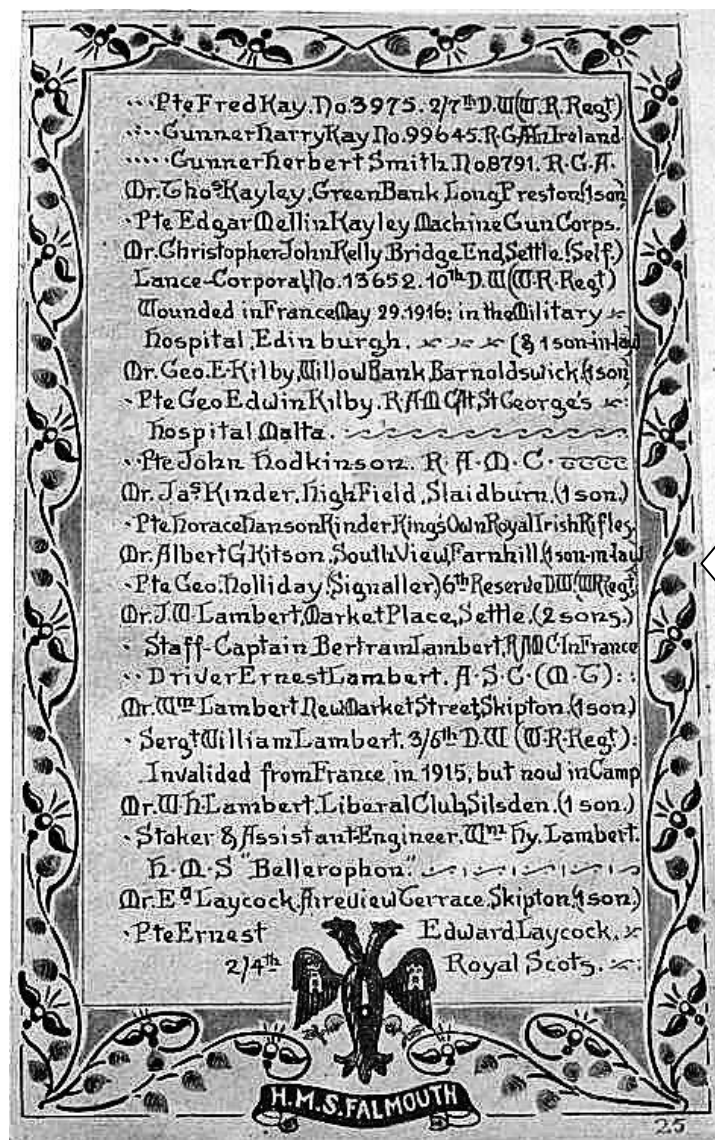 Pte Fred Kay. No. 3975. 2/7th D.W (W.R. Regt)
Gunner Harry Kay No. 99645. R.G.A In Ireland
Gunner Herbert Smith. No. 8791. R.G.A.
Mr. Thos Kayley, Green Bank, Long Preston (1 son)
Pte Edgar Mellin Kayley Machine Gun Corps.
Mr. Christopher John Kelly, Bridge End, Settle. (Self.)
Lance-Corporal, No. 13652. 10th D.W (W.R. Regt)
Wounded in France May 29. 1916; in the Military
Hospital, Edinburgh. (& 1 son-in-law
Mr. Geo. E. Kilby, Willow Bank, Barnoldswick, (1 son)
Pte Geo Edwin Kilby. R.A.M.C At, St George's
Hospital Malta.
Pte John Hodkinson. R.A.M.C.
Mr. Jas Kinder, High Field, Slaidburn. (1 son.)
Pte Horace Hanson Kinder King's Own Royal Irish Rifles.
Mr. Albert G Kitson, South View, Farnhill, (1 son-in-law
Pte Geo. Holliday (Signaller) 6th Reserve D.W (W R Regt)
Mr. J. W. Lambert, Market Place, Settle. (2 sons.)
Staff-Captain Bertram Lambert, R.A.M.C. In France
Driver Ernest Lambert. A.S.C. (M.T):
Mr. Wm Lambert New Market Street, Skipton. (1 son)
Sergt William Lambert. 3/6th D.W (W.R. Regt):
Invalided from France in 1915, but now in Camp
Mr. W H Lambert. Liberal Club, Silsden. (1 son.)
Stoker & Assistant-Engineer. Wm Hy. Lambert.
H.M.S "Bellerophon."
Mr. Ed Laycock, Aireview Terrace, Skipton, (1 son.)
Pte Ernest Edward Laycock.
2/4th Royal Scots.
H.M.S. FALMOUTH
25